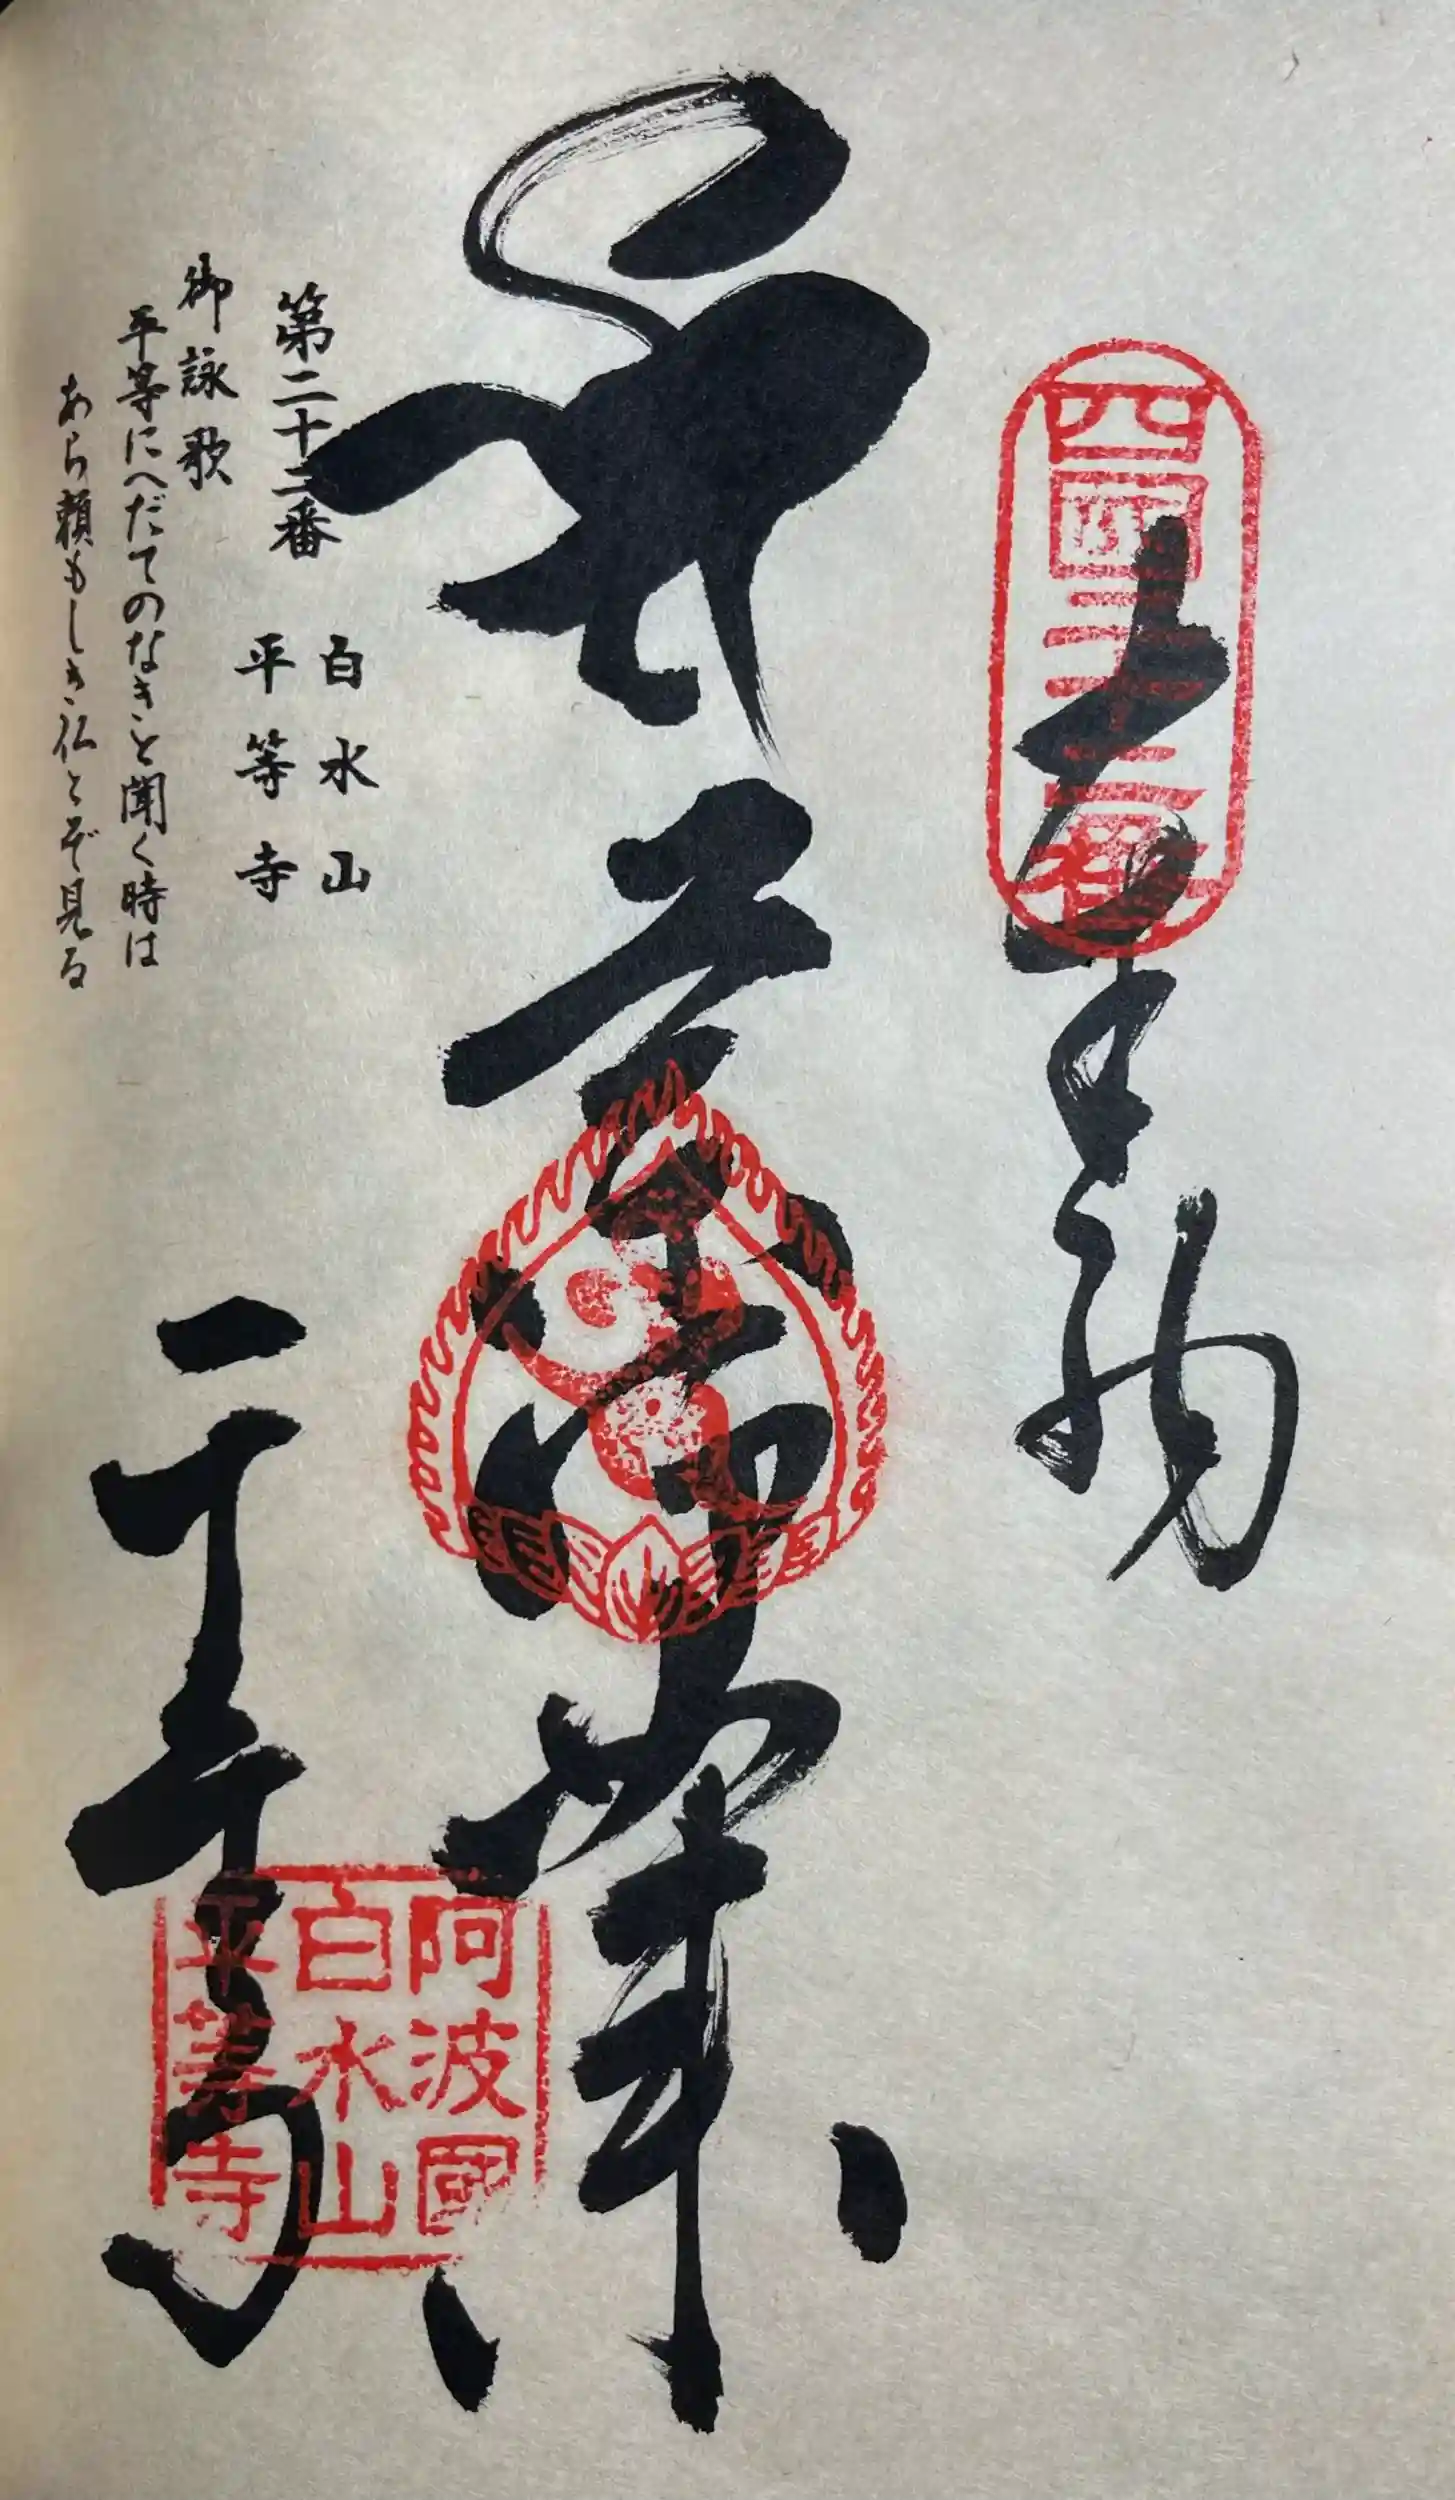 四國二十二番
奉納
薬師如来
平等寺
阿波國
白水山
平等寺
第二十二番
白水山
平等寺
御詠歌
平等にへだてのなきと聞く時は
あら頼もしき仏とぞ見る